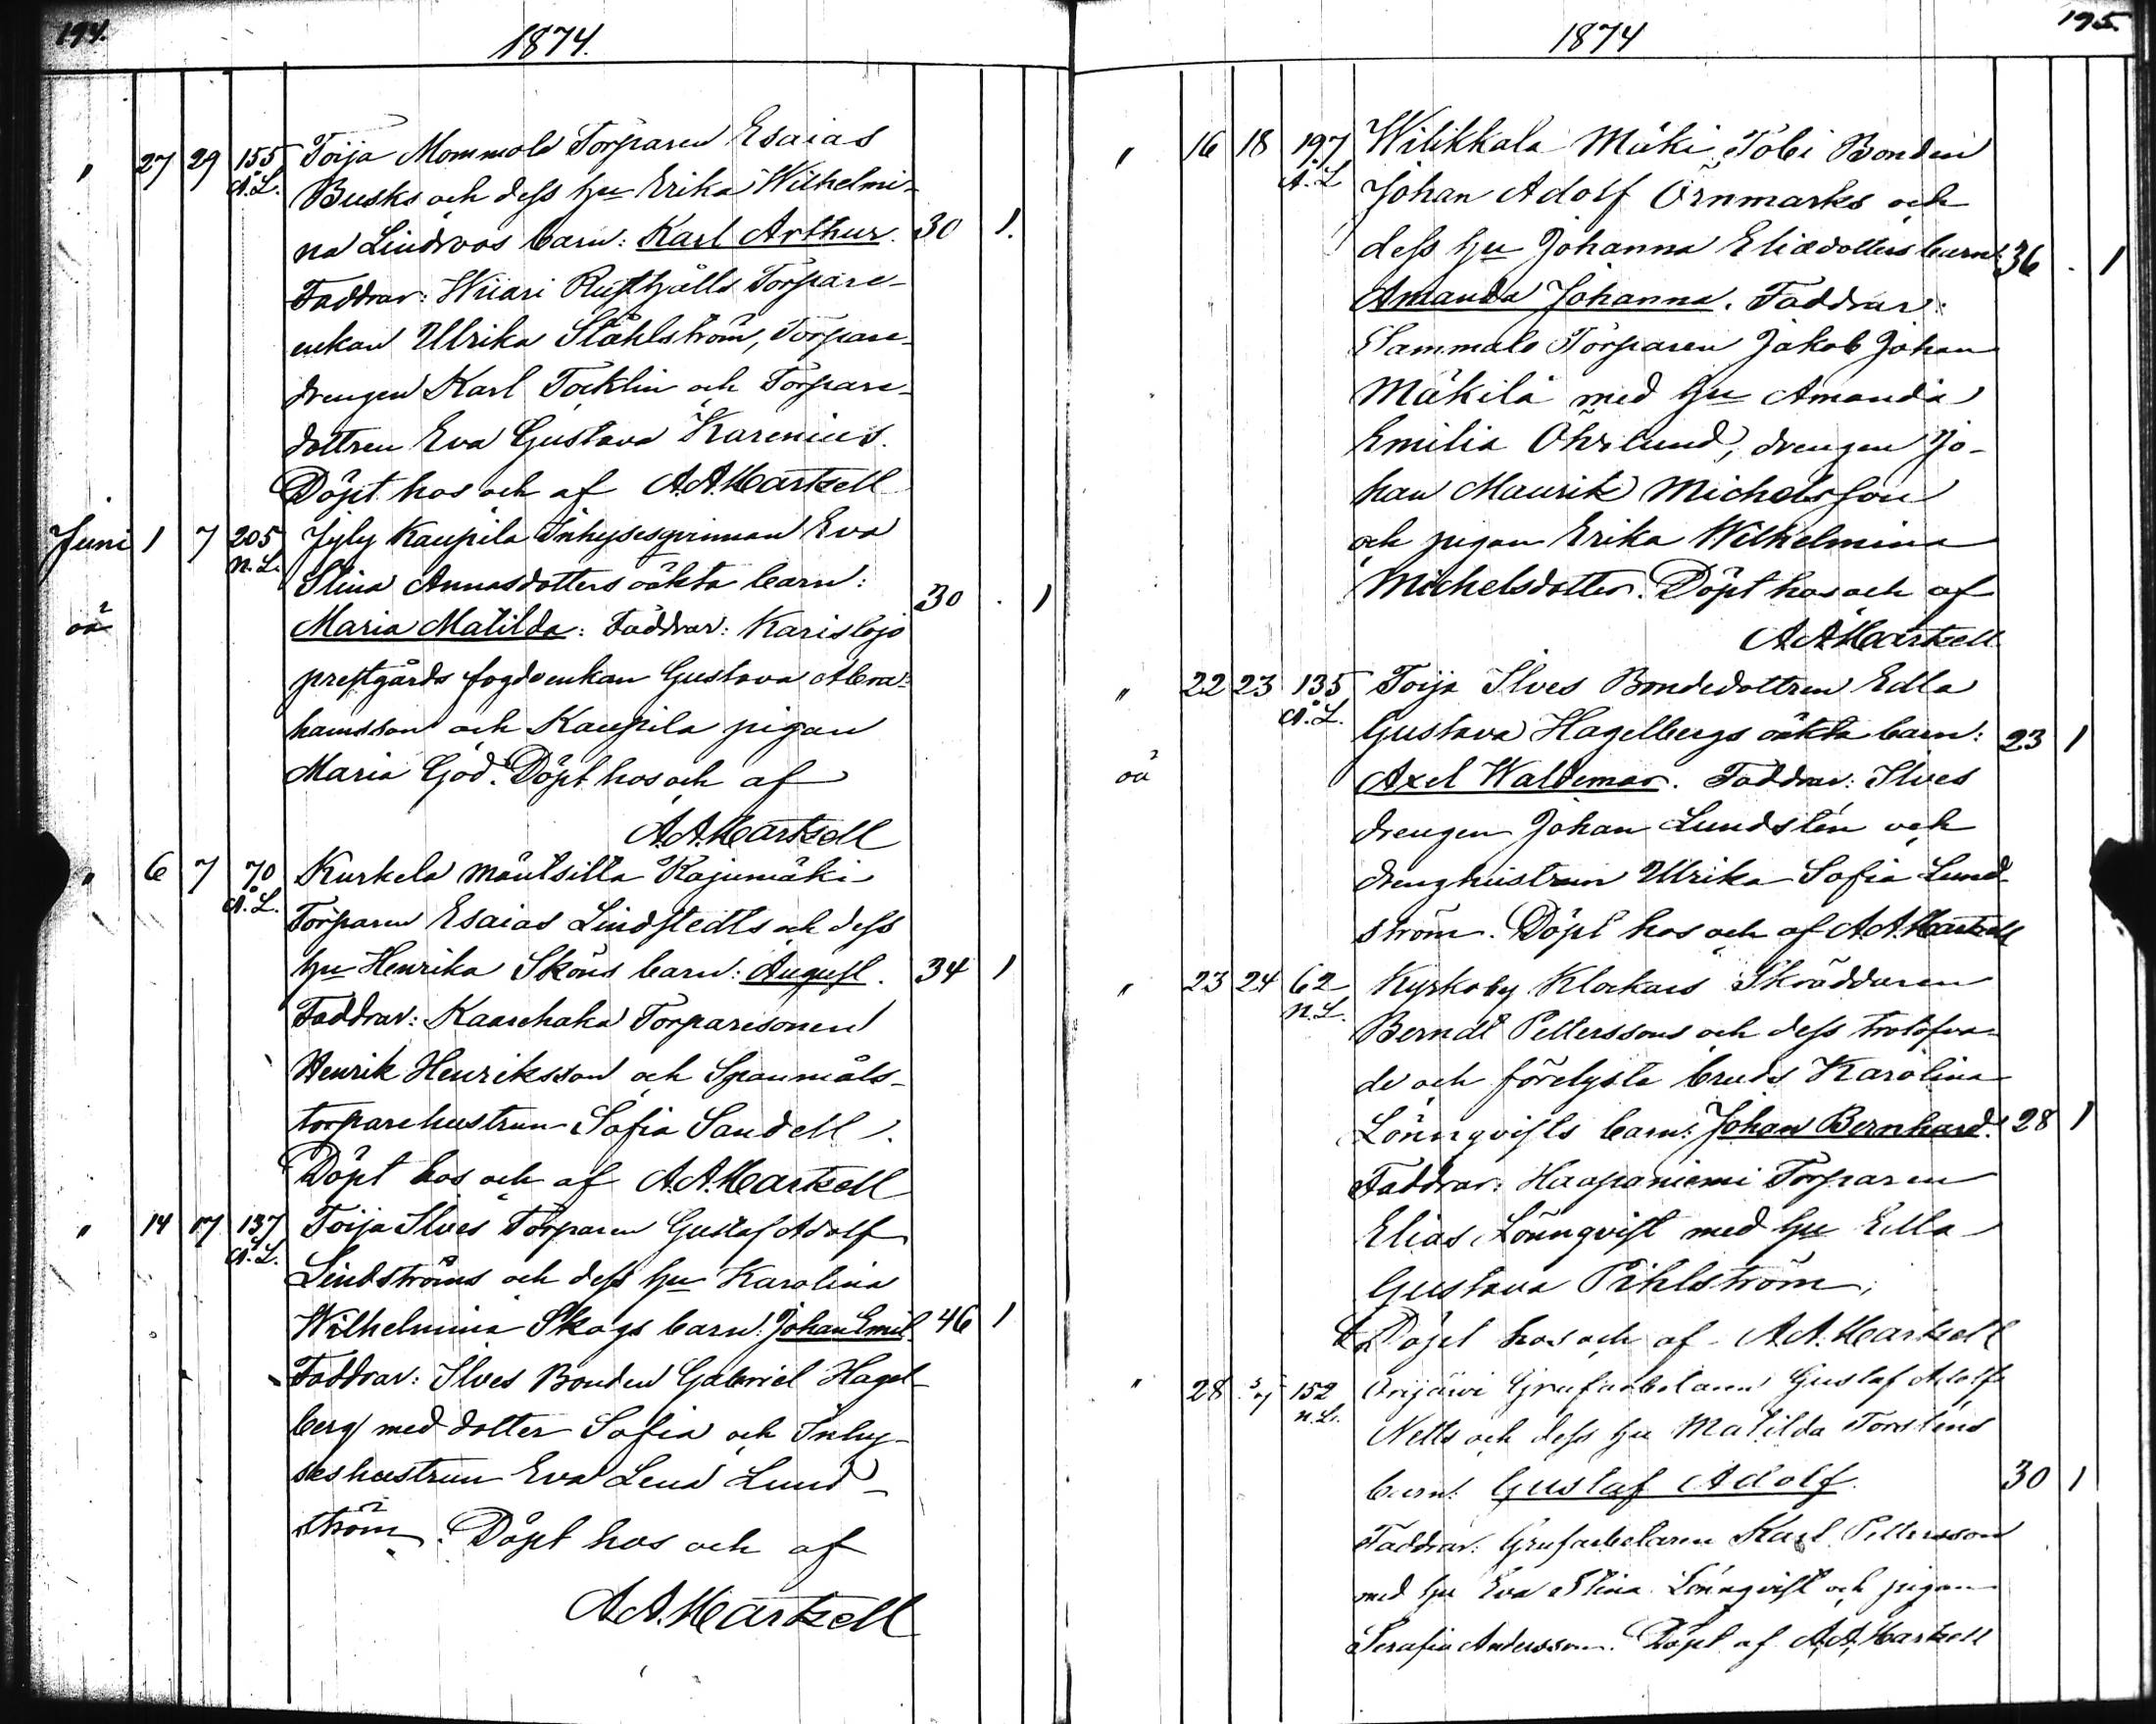 194.
1874.
" 27 29 155 Toija Mommola Torparen Esaias
Å.L. Busks och dess hu Erika Wilhelmi-
na Lindroos barn: Karl Arthur. 30 1.
Faddrar: Wiiari Rusthålls Torpare-
enkan Ulrika Ståhlström, Torpare-
drengen Karl Tocklin och Torpare-
dottren Eva Gustava Karenius.
Döpt hos och af A.A. Hartzell
Juni 1 7 205 Jyly Kaupila Inhysesqvinnan Eva
N.L. Stina Annasdotters oäkta barn:
30 . 1
oä Maria Matilda: Faddrar: Karislojo
prestgårds fogdeenkan Gustava Abra-
hamsson och Kaupila pigan
Maria God. Döpt hos och af
A.A. Hartzell
" 6 7 70 Kurkela Mäntsilla Rajumäki
Å.L. Torparen Esaias Lindstedts och dess
hu Henrika Sköns barn: August. 34 1
Faddrar: Kaarehaka Torparesonen
Henrik Henriksson och Spanmåls-
torparehustrun Sofia Sandell.
Döpt hos och af A.A. Hartzell
" 14 17 137 Toija Ilves Torparen Gustaf Adolf
Å.L. Lindströms och dess hu Karolina
Wilhelmina Skogs barn: Johan Emil 46 1
Faddrar: Ilves Bonden Gabriel Hagel-
berg med dotter Sofia och Inhy-
seshustrun Eva Lena Lund-
ström. Döpt hos och af
A.A. Hartzell
195.
1874
" 16 18 197 Wilikkala Mäki Töbi Bonden
Å.L. Johan Adolf Örnmarks och
dess hu Johanna Eliædotters barn: 36 . 1
Amanda Johanna. Faddrar:
Sammalo Torparen Jakob Johan
Mäkilä med hu Amanda
Emilia Öhrlund, drengen Jo-
han Maurik Michelsson
och pigan Erika Wilhelmina
Michelsdotter. Döpt hos och af
A.A. Hartzell
" 22 23 135 Toija Ilves Bondedottren Edla
Å.L. Gustava Hagelbergs oäkta barn: 23 1
oä Axel Waldemar. Faddrar: Ilves
drengen Johan Lundstén och
drenghustrun Ulrika Sofia Lund-
ström. Döpt hos och af A.A. Hartzell
" 23 24 62 Kyrkoby Klockars Skräddaren
N.L. Berndt Petterssons och dess trolofva-
de och förelysta bruds Karolina
Lönnqvists barn: Johan Bernhard. 28 1
Faddrar: Haapaniemi Torparen
Elias Lönnqvist med hu Edla
Gustava Pihlström,
Döpt hos och af A.A. Hartzell
" 28 152 Orijärvi Grufarbetaren Gustaf Adolf
N.L. Netts och dess hu Matilda Torsténs
barn: Gustaf Adolf. 30 1
Faddrar: Grufarbetaren Karl Pettersson
med hu Eva Stina Lönnqvist och pigan
Serafia Andersson. Döpt af A.A. Hartzell